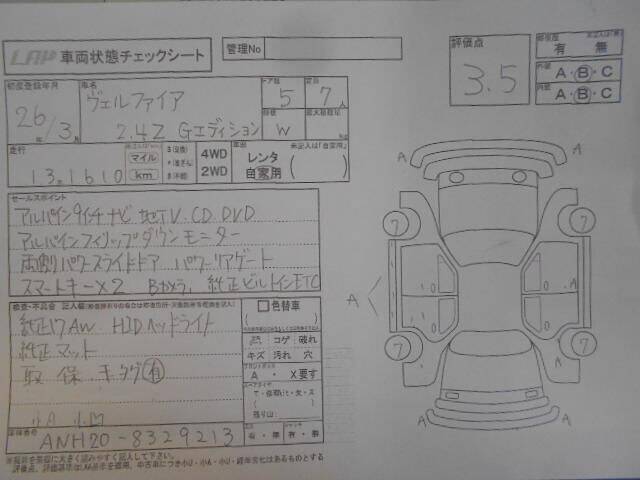 LAA 車両状態チェックシート
管理No
評価点
3.5
有 無
A・B・C
A・B・C
初度登録年月
26年/3月
車名
ヴェルファイア
2.4Z Gエディション
ドア数
5
定員
7人
W
走行
131610
マイル
km
4WD
2WD
車歴
レンタ
自家用
セールスポイント
アルパイン9インチナビ 地TV. CD. DVD
アルパインフィリップダウンモニター
両側パワースライドドア パワーリアゲート
スマートキー×2 Bカメラ, 純正ビルトインETC
検査・不具合 記入欄
純正17AW HIDヘッドライト
純正マット
取 保 キタグ 有
小A 小凹
車体番号
ANH20-8329213
色替車
コゲ 破れ
キズ 汚れ 穴
A・ X要す
残り山:
有・無
有・無
A
A
7
7
7
7
A
A
A